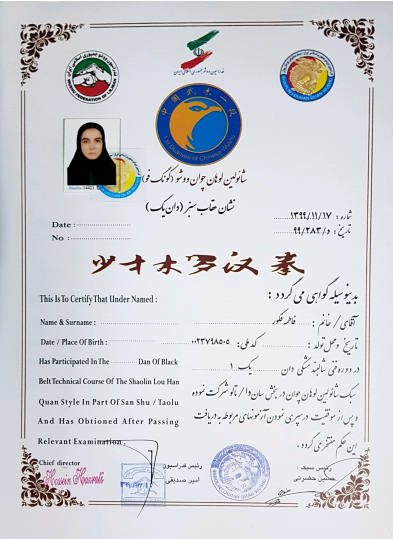 فدراسیون ووشو جمهوری اسلامی ایران
中国武术一段
1st Duanwei of Chinese Wushu
شائولین لوهان چوان ووشو (کونگ فو)
نشان عقاب سبز (دان یک)
شماره : ۱۳۹۹/۱۱/۱۷
تاریخ : ۹۹/۲۸۳/۵
Date :
No :
少才木罗汉拳
بدینوسیله گواهی می گردد :
This Is To Certify That Under Named :
آقای / خانم : فاطمه فکور
Name & Surname :
تاریخ و محل تولد : کد ملی: ۰۰۲۳۷۹۸۵۰۵
Date / Place Of Birth :
در دوره فنی شالبند مشکی دان یک ۱
Has Participated In The Dan Of Black
سبک شائولین لوهان چوان در بخش ساندا / تالو شرکت نموده
Belt Technical Course Of The Shaolin Lou Han
Quan Style In Part Of San Shu / Taolu
و پس از موفقیت در سپری نمودن آزمونهای مربوطه به دریافت
And Has Obtioned After Passing
این حکم مفتخر می گردد .
Relevant Examination .
Chief director
Hossein Hazrati
رئیس فدراسیون
امیر صدیقی
رئیس سبک
حسین حضرتی